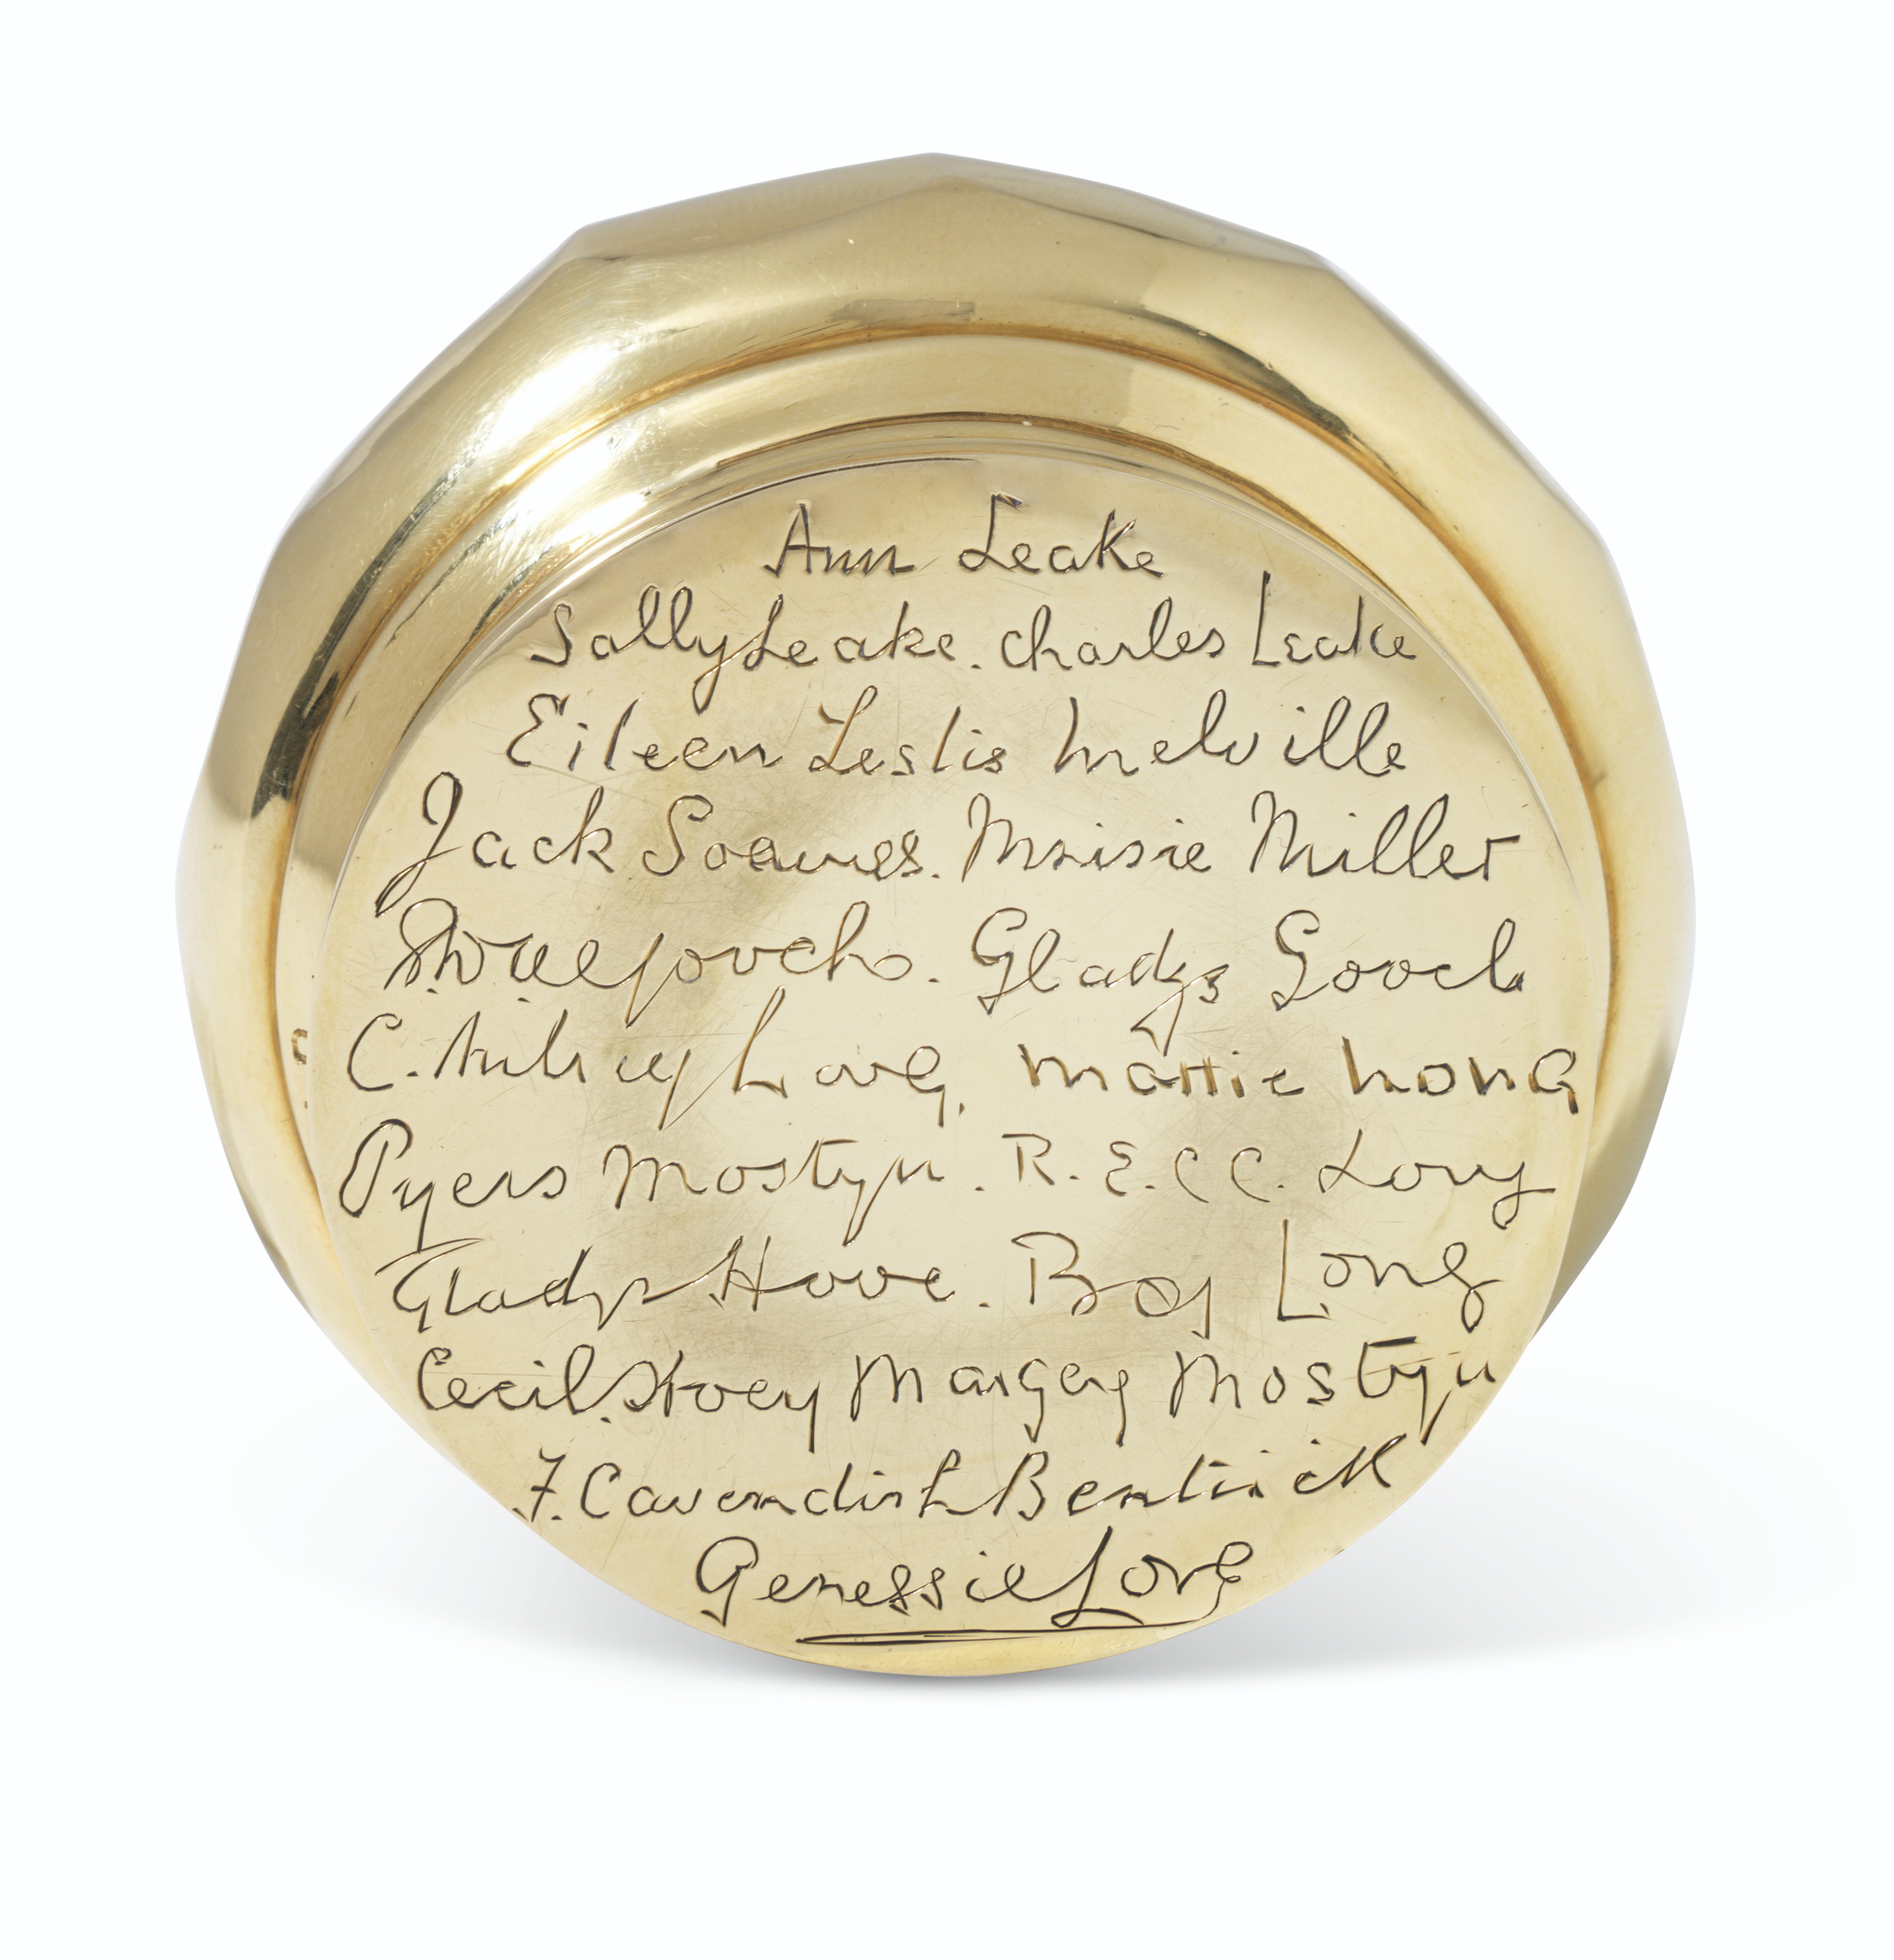 Ann Leake
Sally Leake. Charles Leake
Eileen Leslie Melville
Jack Soames. Maisie Miller
Gladys Gooch
C. Long, mattie Long
Pyers Mostyn. R. E. C C. Long
Gladys. Boy Long
Cecil. Hoey Margery Mostyn
F. Cavendish Bentinck
Genessie Long